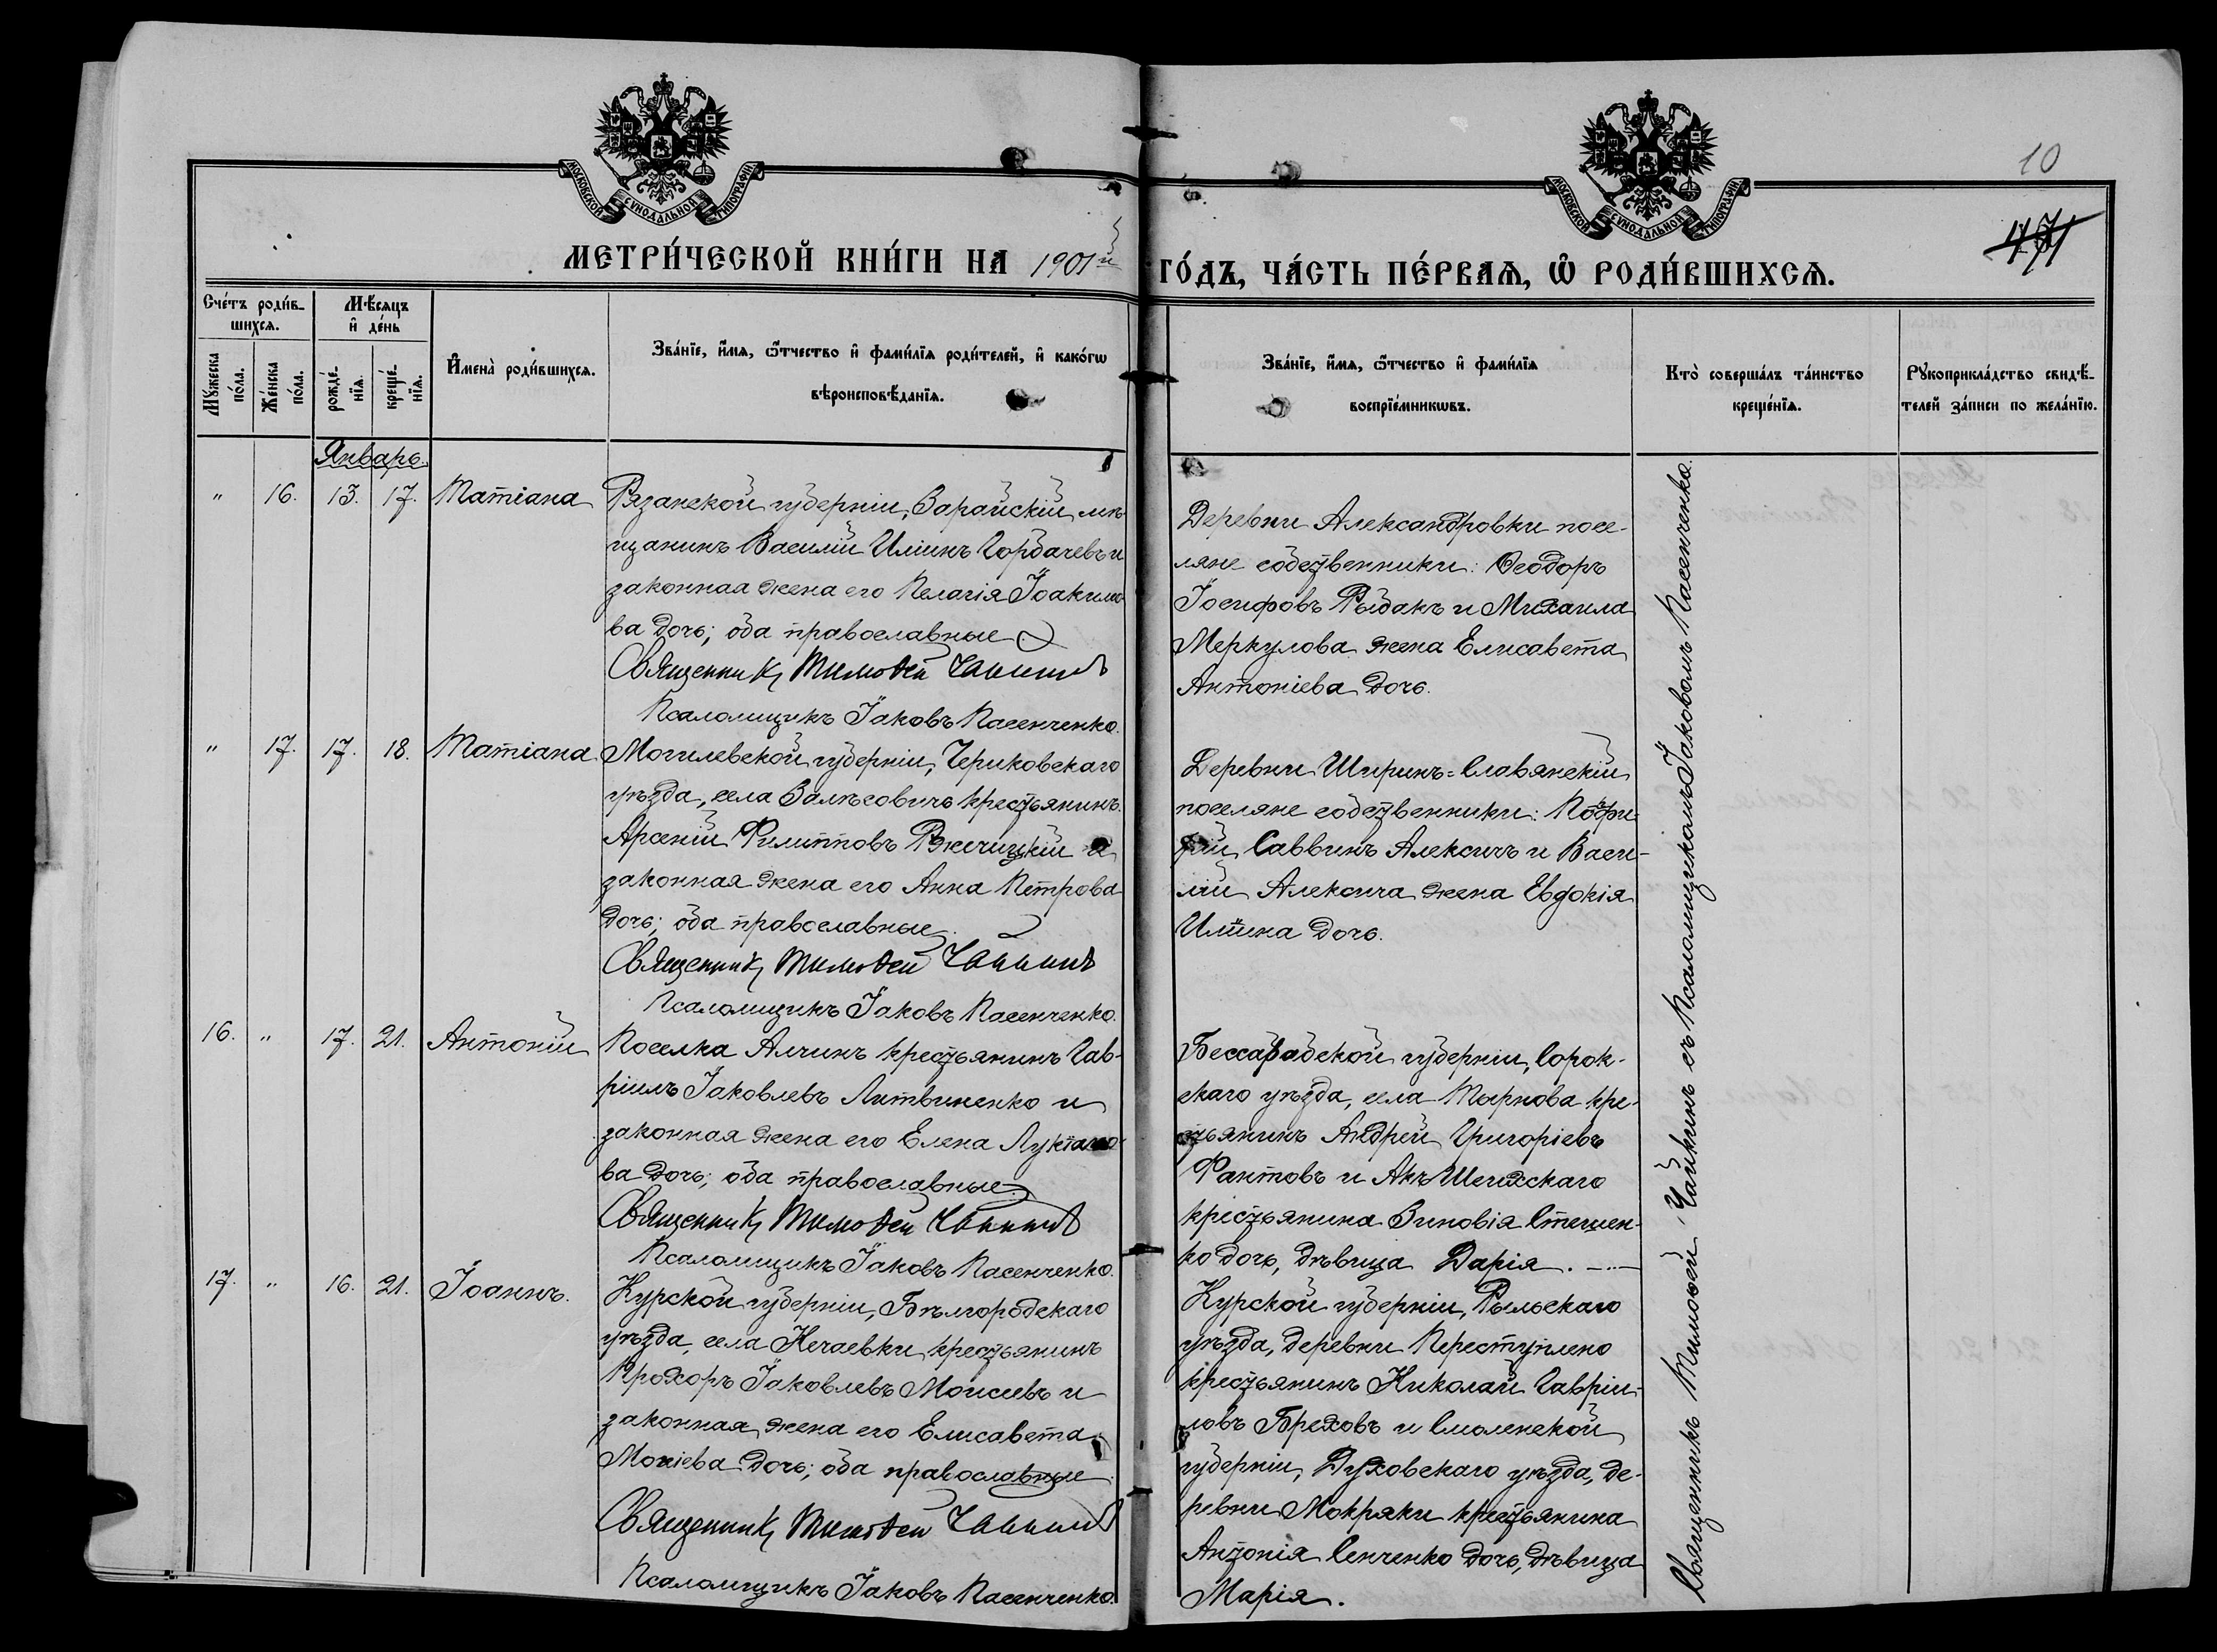 МОСКОВСКОЙ СУНОДАЛЬНОЙ ТИПОГРАФІИ
МОСКОВСКОЙ СУНОДАЛЬНОЙ ТИПОГРАФІИ
10
471
МЕТРИ́ЧЕСКОЙ КНИ́ГИ НА 1901й ГО́ДЪ, ЧА́СТЬ ПЕ́РВАЯ, Ѡ РОДИ́ВШИХСЯ.
Сче́тъ роди́в-
шихся.
Мѣ́сяцъ
и де́нь
Му́жеска
по́ла.
Же́нска
по́ла.
рожде́-
нія.
креще́-
нія.
Имена̀ роди́вшихся.
Зва́ніе, и́мя, ѻ́тчество и фами́лія роди́телей, и како́гѡ
вѣроисповѣ́данія.
Зва́ніе, и́мя, ѻ́тчество и фами́лія
воспріе́мникѡвъ.
Кто̀ соверша́лъ та́инство
креще́нія.
Рукоприкла́дство свидѣ́-
телей за́писи по жела́нію.
Январь.
" 16. 13. 17. Татіана
Рязанской губерніи, Зарайскій мѣ-
щанинъ Василій Иліинъ Горбачевъ и
законная жена его Пелагія Іоакимо-
ва дочь; оба православные
Священникъ Тимоѳей Чайкинъ
Псаломщикъ Іаковъ Пасенченко.
Деревни Александровки посе-
ляне собственники: Ѳеодоръ
Іосифовъ Рыбакъ и Михаила
Меркулова жена Елисавета
Антоніева дочь.
" 17. 17. 18. Татіана
Могилевской губерніи, Чериковскаго
уѣзда, села Залѣсовичъ крестьянинъ
Арсеній Филипповъ Рѣжицкій и
законная жена его Анна Петрова
дочь; оба православные.
Священникъ Тимоѳей Чайкинъ
Псаломщикъ Іаковъ Пасенченко.
Деревни Ширинъ=Славянскій
поселяне собственники: Порфи-
рій Саввинъ Алексичъ и Васи-
лій Алексича жена Евдокія
Иліина дочь.
16. " 17. 21. Антоній
Поселка Алчинъ крестьянинъ Гав-
ріилъ Іаковлевъ Литвиненко и
законная жена его Елена Лукіано-
ва дочь; оба православные.
Священникъ Тимоѳей Чайкинъ
Псаломщикъ Іаковъ Пасенченко.
Бессарабской губерніи, Сорок-
скаго уѣзда, села Тырнова кре-
стьянинъ Андрей Григоріевъ
Фантовъ и Акъ Шеихскаго
крестьянина Зиновія Стешен-
ко дочь, дѣвица Дарія.
17. " 16. 21. Іоаннъ.
Курской губерніи, Бѣлгородскаго
уѣзда, села Нечаевки крестьянинъ
Прохоръ Іаковлевъ Моисеевъ и
законная жена его Елисавета
Мокіева дочь; оба православные
Священникъ Тимоѳей Чайкинъ
Псаломщикъ Іаковъ Пасенченко.
Курской губерніи, Рыльскаго
уѣзда, деревни Переступлено
крестьянинъ Николай Гавріи-
ловъ Бреховъ и Смоленской
губерніи, Духовскаго уѣзда, де-
ревни Мокряки крестьянина
Антонія Сенченко дочь, дѣвица
Марія.
Священникъ Тимоѳей Чайкинъ съ Псаломщикомъ Іаковомъ Пасенченко.